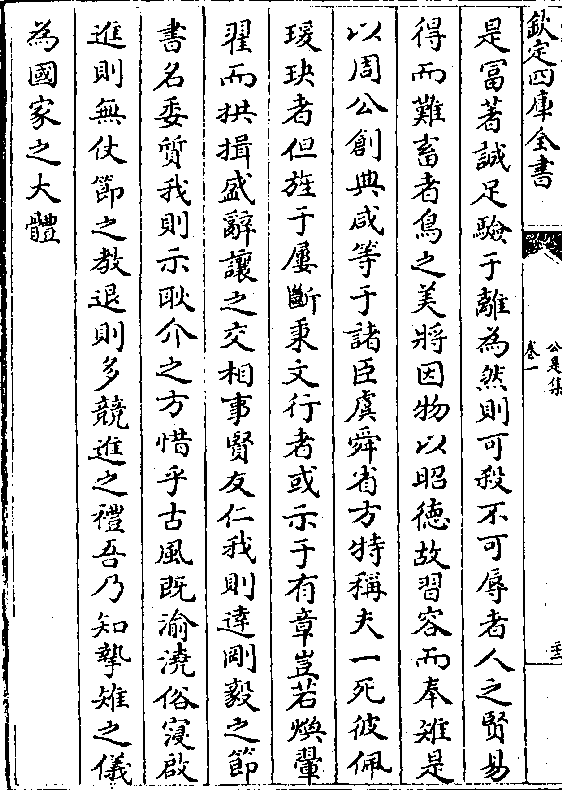 欽定四庫全書
公是集
卷一
是冨著誠足驗于離為然則可殺不可辱者人之賢易
得而難畜者鳥之美將因物以昭徳故習容而奉雉是
以周公創典咸等于諸臣虞舜省方特稱夫一死彼佩
瑗玦者但旌于屢斷秉文行者或示于有章豈若煥翬
翟而拱揖盛辭讓之交相事賢友仁我則達剛毅之節
書名委質我則示耿介之方惜乎古風既渝澆俗寖啟
進則無仗節之教退則多競進之禮吾乃知摯雉之儀
為國家之大體